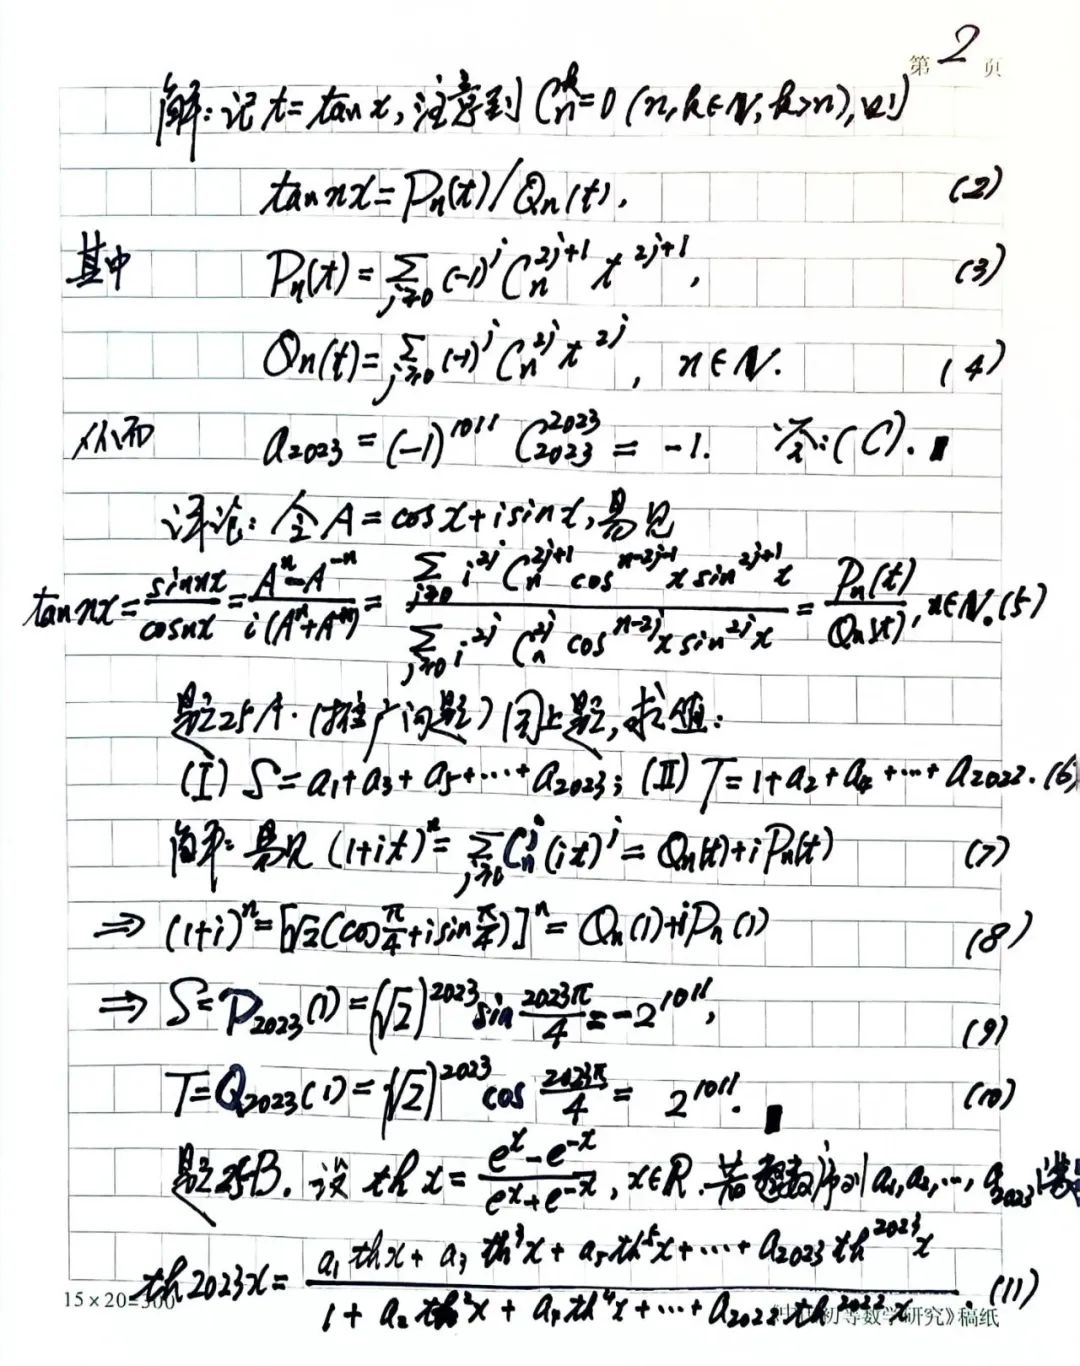 第 2 页
解：记 t = tan x，注意到 C_n^k = 0 (n, k ∈ N, k > n)，则
tan nx = P_n(t) / Q_n(t). (2)
其中 P_n(t) = ∑_{j≥0} (-1)^j C_n^{2j+1} t^{2j+1}, (3)
Q_n(t) = ∑_{j≥0} (-1)^j C_n^{2j} t^{2j}, n ∈ N. (4)
从而 a_{2023} = (-1)^{1011} C_{2023}^{2023} = -1. 答：(C). ∎
评论：令 A = cos x + i sin x，易见
tan nx = \frac{sin nx}{cos nx} = \frac{A^n - A^{-n}}{i(A^n + A^{-n})} = \frac{∑_{j≥0} i^{2j} C_n^{2j+1} cos^{n-2j-1} x sin^{2j+1} x}{∑_{j≥0} i^{2j} C_n^{2j} cos^{n-2j} x sin^{2j} x} = \frac{P_n(t)}{Q_n(t)}, n ∈ N. (5)
题25A. (推广问题) 同上题，求值：
(I) S = a_1 + a_3 + a_5 + ⋯ + a_{2023}; (II) T = 1 + a_2 + a_4 + ⋯ + a_{2022}. (6)
解：易见 (1+it)^n = ∑_{j≥0} C_n^j (it)^j = Q_n(t) + i P_n(t) (7)
⇒ (1+i)^n = [√2 (cos \frac{π}{4} + i sin \frac{π}{4})]^n = Q_n(1) + i P_n(1) (8)
⇒ S = P_{2023}(1) = (√2)^{2023} sin \frac{2023π}{4} = -2^{1011}, (9)
T = Q_{2023}(1) = (√2)^{2023} cos \frac{2023π}{4} = 2^{1011}. ∎ (10)
题25B. 设 th x = \frac{e^x - e^{-x}}{e^x + e^{-x}}, x ∈ R. 若整数序列 a_1, a_2, ⋯, a_{2023}
th 2023x = \frac{a_1 th x + a_3 th^3 x + a_5 th^5 x + ⋯ + a_{2023} th^{2023} x}{1 + a_2 th^2 x + a_4 th^4 x + ⋯ + a_{2022} th^{2022} x} (11)
15×20=300 初等数学研究》稿纸